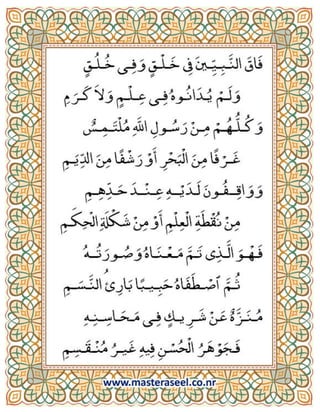 فَاقَ النَّبِيِّينَ فِي خَلْقٍ وَفِي خُلُقٍ
وَلَمْ يُدَانُوهُ فِي عِلْمٍ وَلَا كَرَمِ
وَكُلُّهُمْ مِنْ رَسُولِ اللهِ مُلْتَمِسٌ
غَرْفًا مِنَ الْبَحْرِ أَوْ رَشْفًا مِنَ الدِّيَمِ
وَوَاقِفُونَ لَدَيْهِ عِنْدَ حَدِهِمِ
مِنْ نُقْطَةِ الْعِلْمِ أَوْ مِنْ شَكْلَةِ الْحِكَمِ
فَهْوَ الَّذِي تَمَّ مَعْنَاهُ وَصُورَتُهُ
ثُمَّ ٱصْطَفَاهُ حَبِيبًا بَارِئُ النَّسَمِ
مُنَزَّهٌ عَنْ شَرِيكٍ فِي مَحَاسِنِهِ
فَجَوْهَرُ الْحُسْنِ فِيهِ غَيْرُ مُنْقَسِمِ
www.masteraseel.co.nr